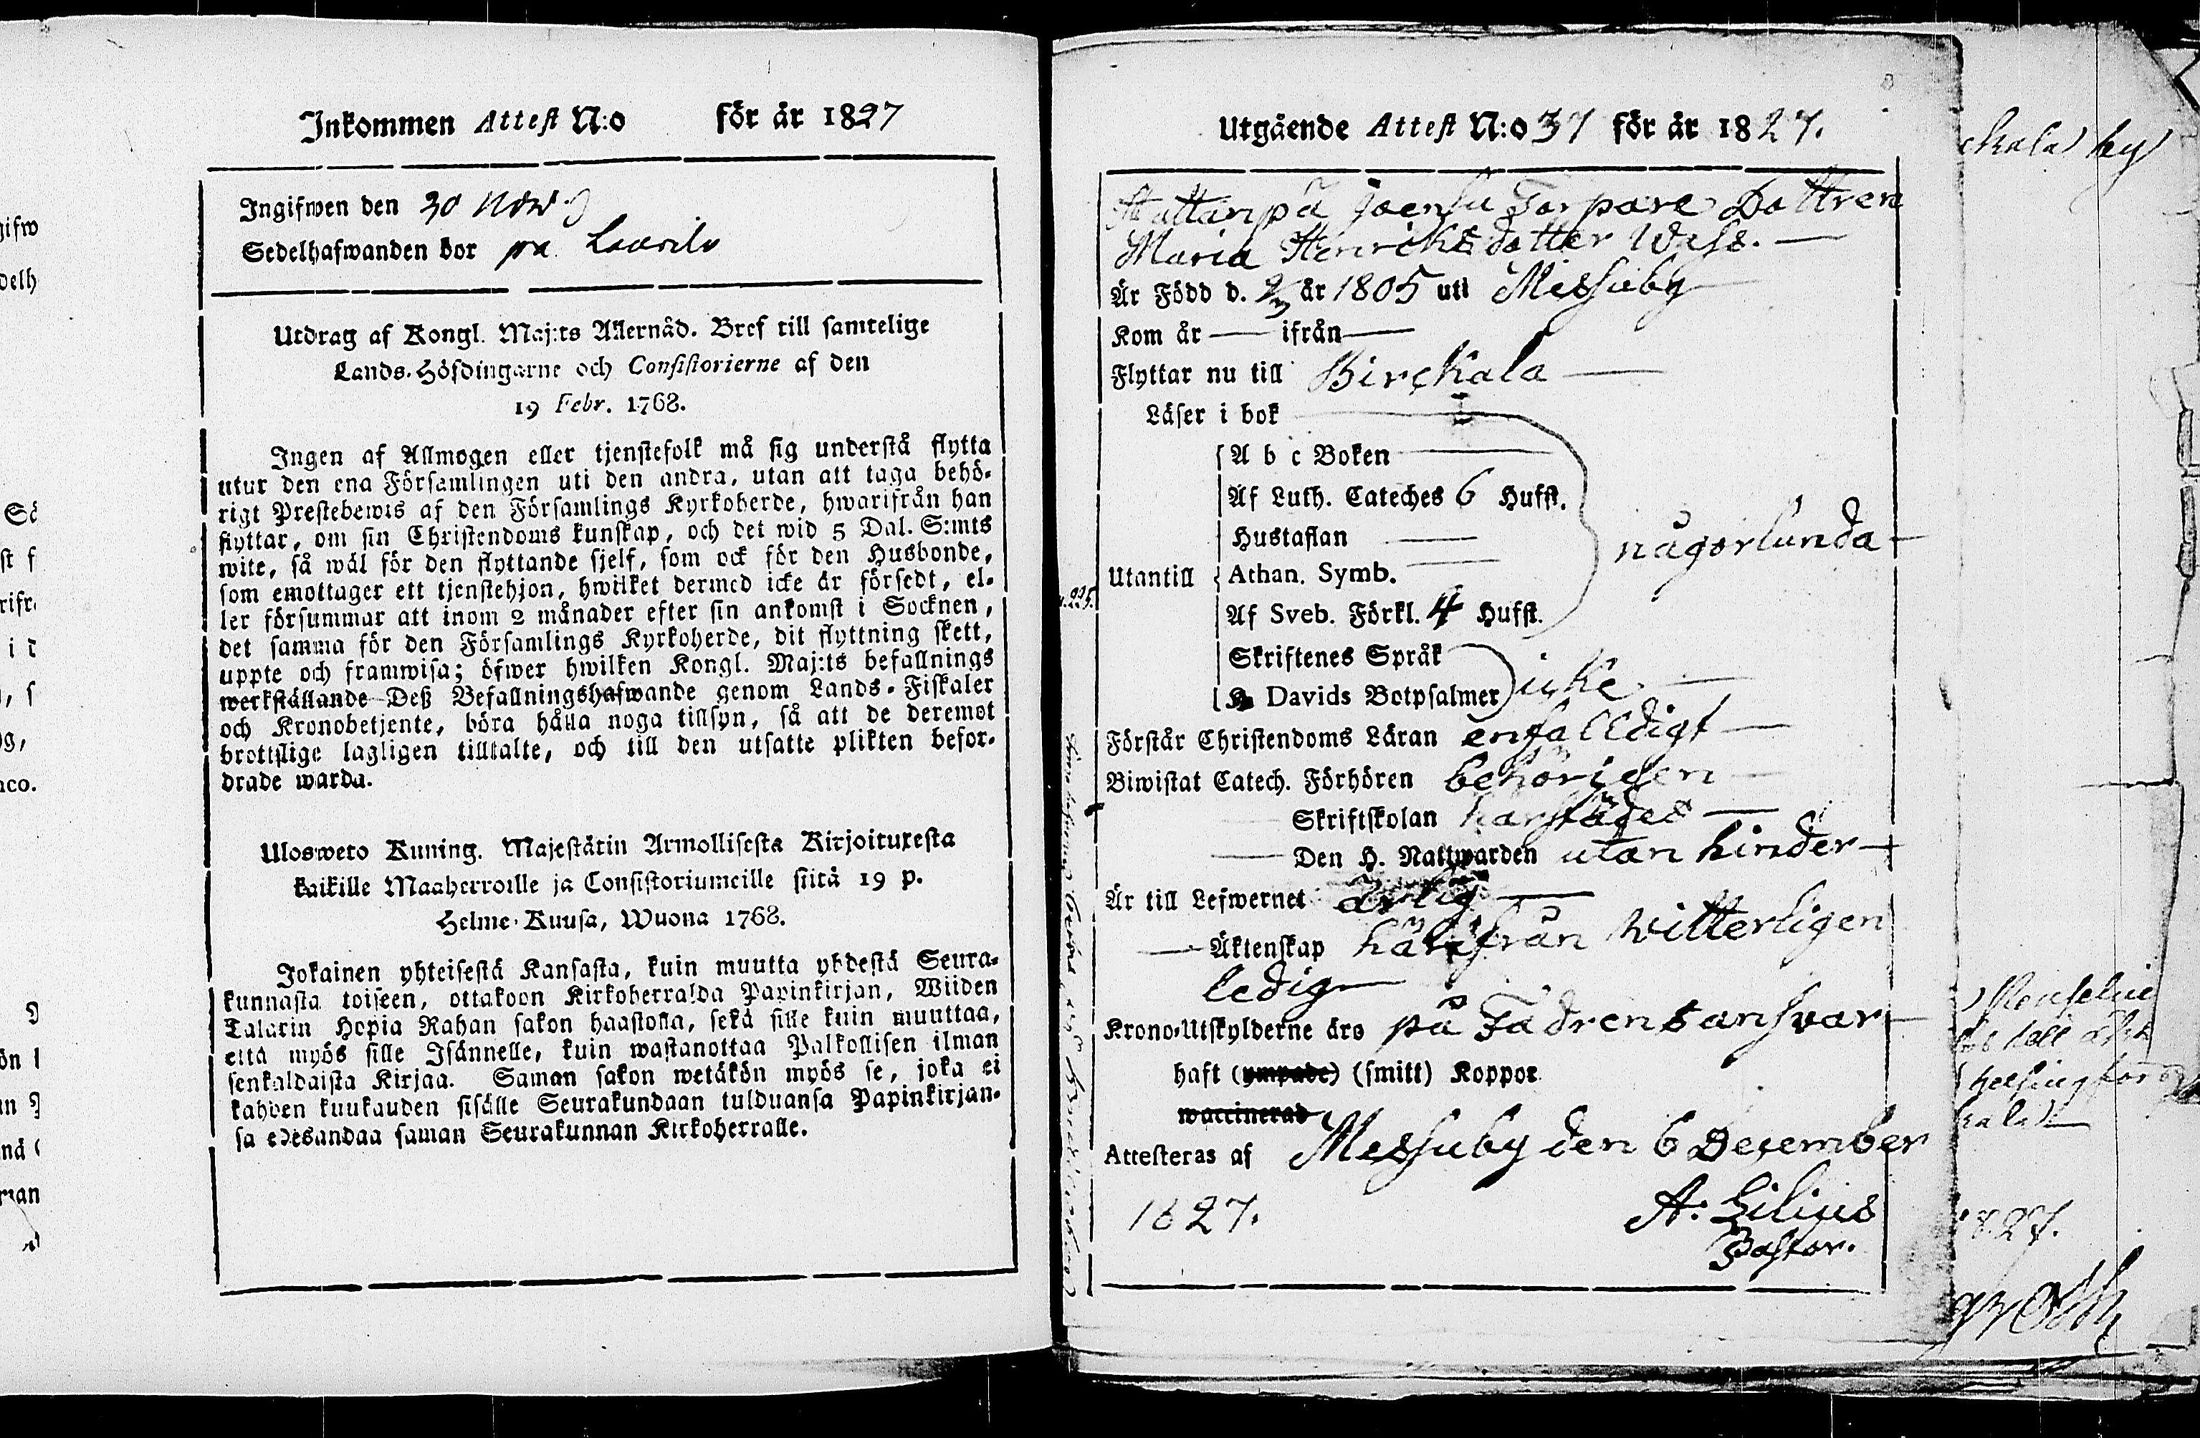 Inkommen Attest N:o för år 1827
Ingifwen den 30 Now.
Sedelhafwanden bor på Laurila
Utdrag af Kongl. Maj:ts Allernåd. Bref till samtelige
Lands-Höfdingarne och Consistorierne af den
19 Febr. 1768.
Ingen af Allmogen eller tjenstefolk må sig understå flytta
utur den ena Församlingen uti den andra, utan att taga behö-
rigt Prestebewis af den Församlings Kyrkoherde, hwarifrån han
flyttar, om sin Christendoms kunskap, och det wid 5 Dal. S:mts
wite, så wäl för den flyttande sjelf, som ock för den Husbonde,
som emottager ett tjenstehjon, hwilket dermed icke är försedt, el-
ler försummar att inom 2 månader efter sin ankomst i Socknen,
det samma för den Församlings Kyrkoherde, dit flyttning skett,
uppte och framwisa; öfwer hwilken Kongl. Maj:ts befallnings
werkställande Deß Befallningshafwande genom Lands-Fiskaler
och Kronobetjente, böra hålla noga tillsyn, så att de deremot
brottslige lagligen tilltalte, och till den utsatte plikten befor-
drade warda.
Ulosweto Kuning. Majestätin Armollisesta Kirjoituxesta
kaikille Maaherroille ja Consistoriumeille siitä 19 p.
Helme-Kuusa, Wuona 1768.
Jokainen yhteisestä Kansasta, kuin muutta yhdestä Seura-
kunnasta toiseen, ottakoon Kirkoherralda Papinkirjan, Wiiden
Talarin Hopia Rahan sakon haastolla, sekä sille kuin muuttaa,
että myös sille Isännelle, kuin wastanottaa Palkollisen ilman
senkaldaista Kirjaa. Saman sakon wetäkön myös se, joka ei
kahden kuukauden sisälle Seurakundaan tulduansa Papinkirjan-
sa edesandaa saman Seurakunnan Kirkoherralle.
Utgående Attest N:o 37 för år 1827.
på Joensu Torpare Dottren
Maria Henricksdotter Wass.
Är Född d. 2/3 år 1805 uti Messuby
Kom år — ifrån —
Flyttar nu till Birckala
Läser i bok
A b c Boken
Af Luth. Cateches 6 Hufst.
Hustaflan
någorlunda
Utantill Athan. Symb.
Af Sveb. Förkl. 4 Hufst.
Skriftenes Språk
K Davids Botpsalmer icke
Förstår Christendoms Läran enfalldigt
Biwistat Catech. Förhören behörigen
Skriftskolan härstädes
Den H. Nattwarden utan hinder
Är till Lefwernet ärlig
Äktenskap härifrån witterligen
ledig
Krono-Utskylderne äro på Fadrens answar
haft (ympade) (smitt) Koppor
waccinerad
Attesteras af Messuby den 6 December
1827.
A. Lilius
Pastor.
ckala by
1827.